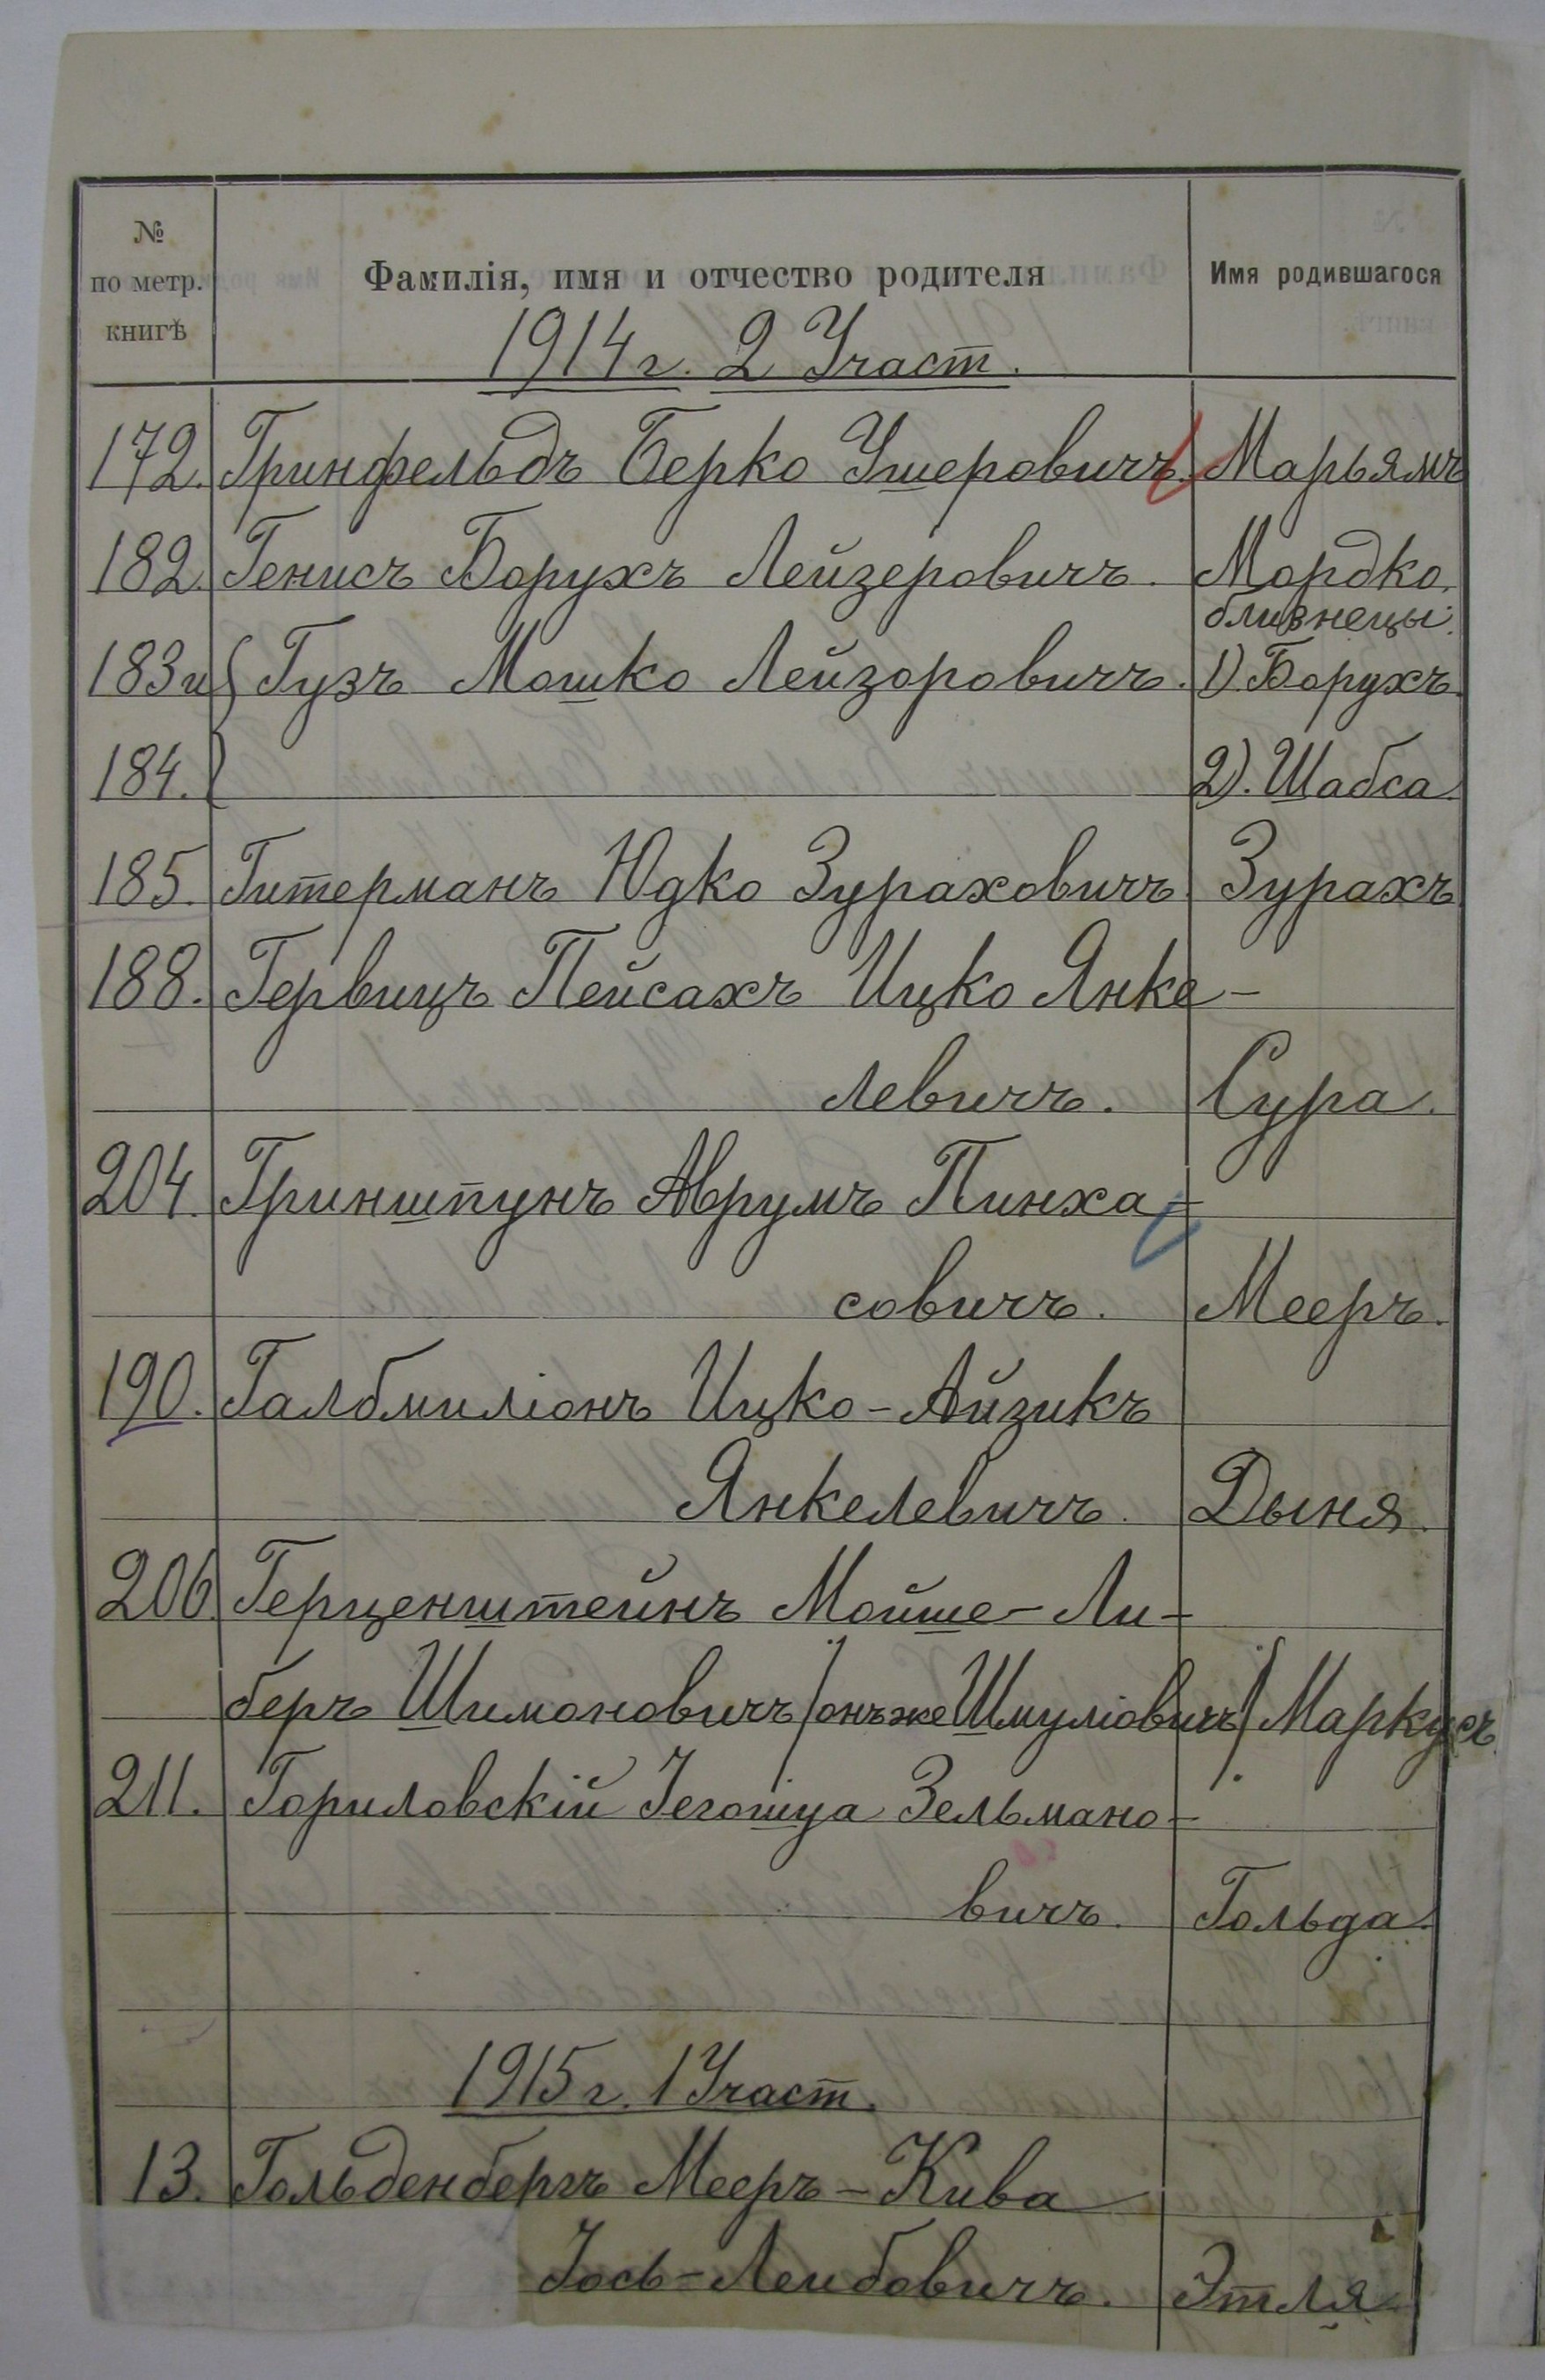 № по метр. книгѣ | Фамилія, имя и отчество родителя | Имя родившагося
1914 г. 2 Участ.
172. Гринфельдъ Берко Ушеровичъ. Марьямъ
182. Генисъ Борухъ Лейзеровичъ. Мордко.
близнецы:
183 и Гузъ Мошко Лейзоровичъ. 1) Борухъ.
184. 2). Шабса.
185. Гитерманъ Юдко Зураховичъ. Зурахъ
188. Гервицъ Пейсахъ Ицко Янке-
левичъ. Сура.
204. Гриншпунъ Аврумъ Пинха-
совичъ. Мееръ.
190. Галбмиліонъ Ицко-Айзикъ
Янкелевичъ. Дыня.
206. Герценштейнъ Мойше-Ли-
беръ Шимоновичъ /онъ же Шмуліовичъ/ Маркусъ
211. Гориловскій Іегошуа Зельмано-
вичъ. Гольда.
1915 г. 1 Участ.
13. Гольденбергъ Мееръ-Кива
Іось-Лейбовичъ. Этля